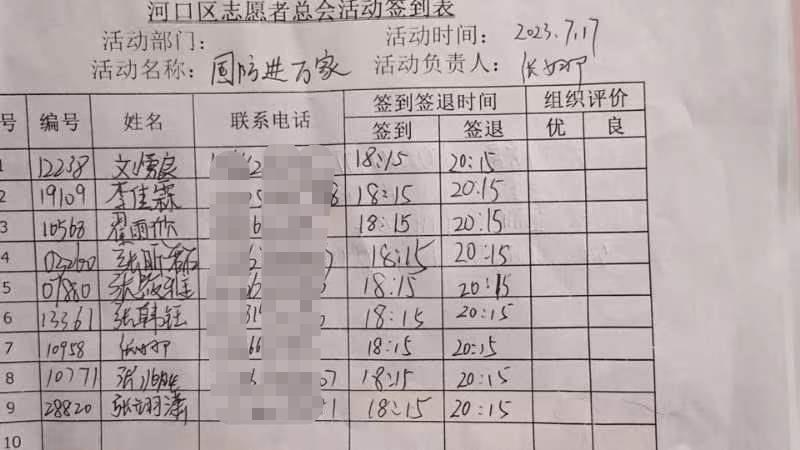 河口区志愿者总会活动签到表
活动部门： 活动时间： 2023.7.17
活动名称： 国防进万家 活动负责人：
号 编号 姓名 联系电话 签到签退时间 组织评价
签到 签退 优 良
1 12238 文 良 18:15 20:15
2 19109 李佳霖 18:15 20:15
3 10568 翟雨 18:15 20:15
4 02260 张 18:15 20:15
5 07880 张 18:15 20:15
6 13361 张韩钰 18:15 20:15
7 10958 18:15 20:15
8 10771 张 18:15 20:15
9 28820 张翊潇 18:15 20:15
10